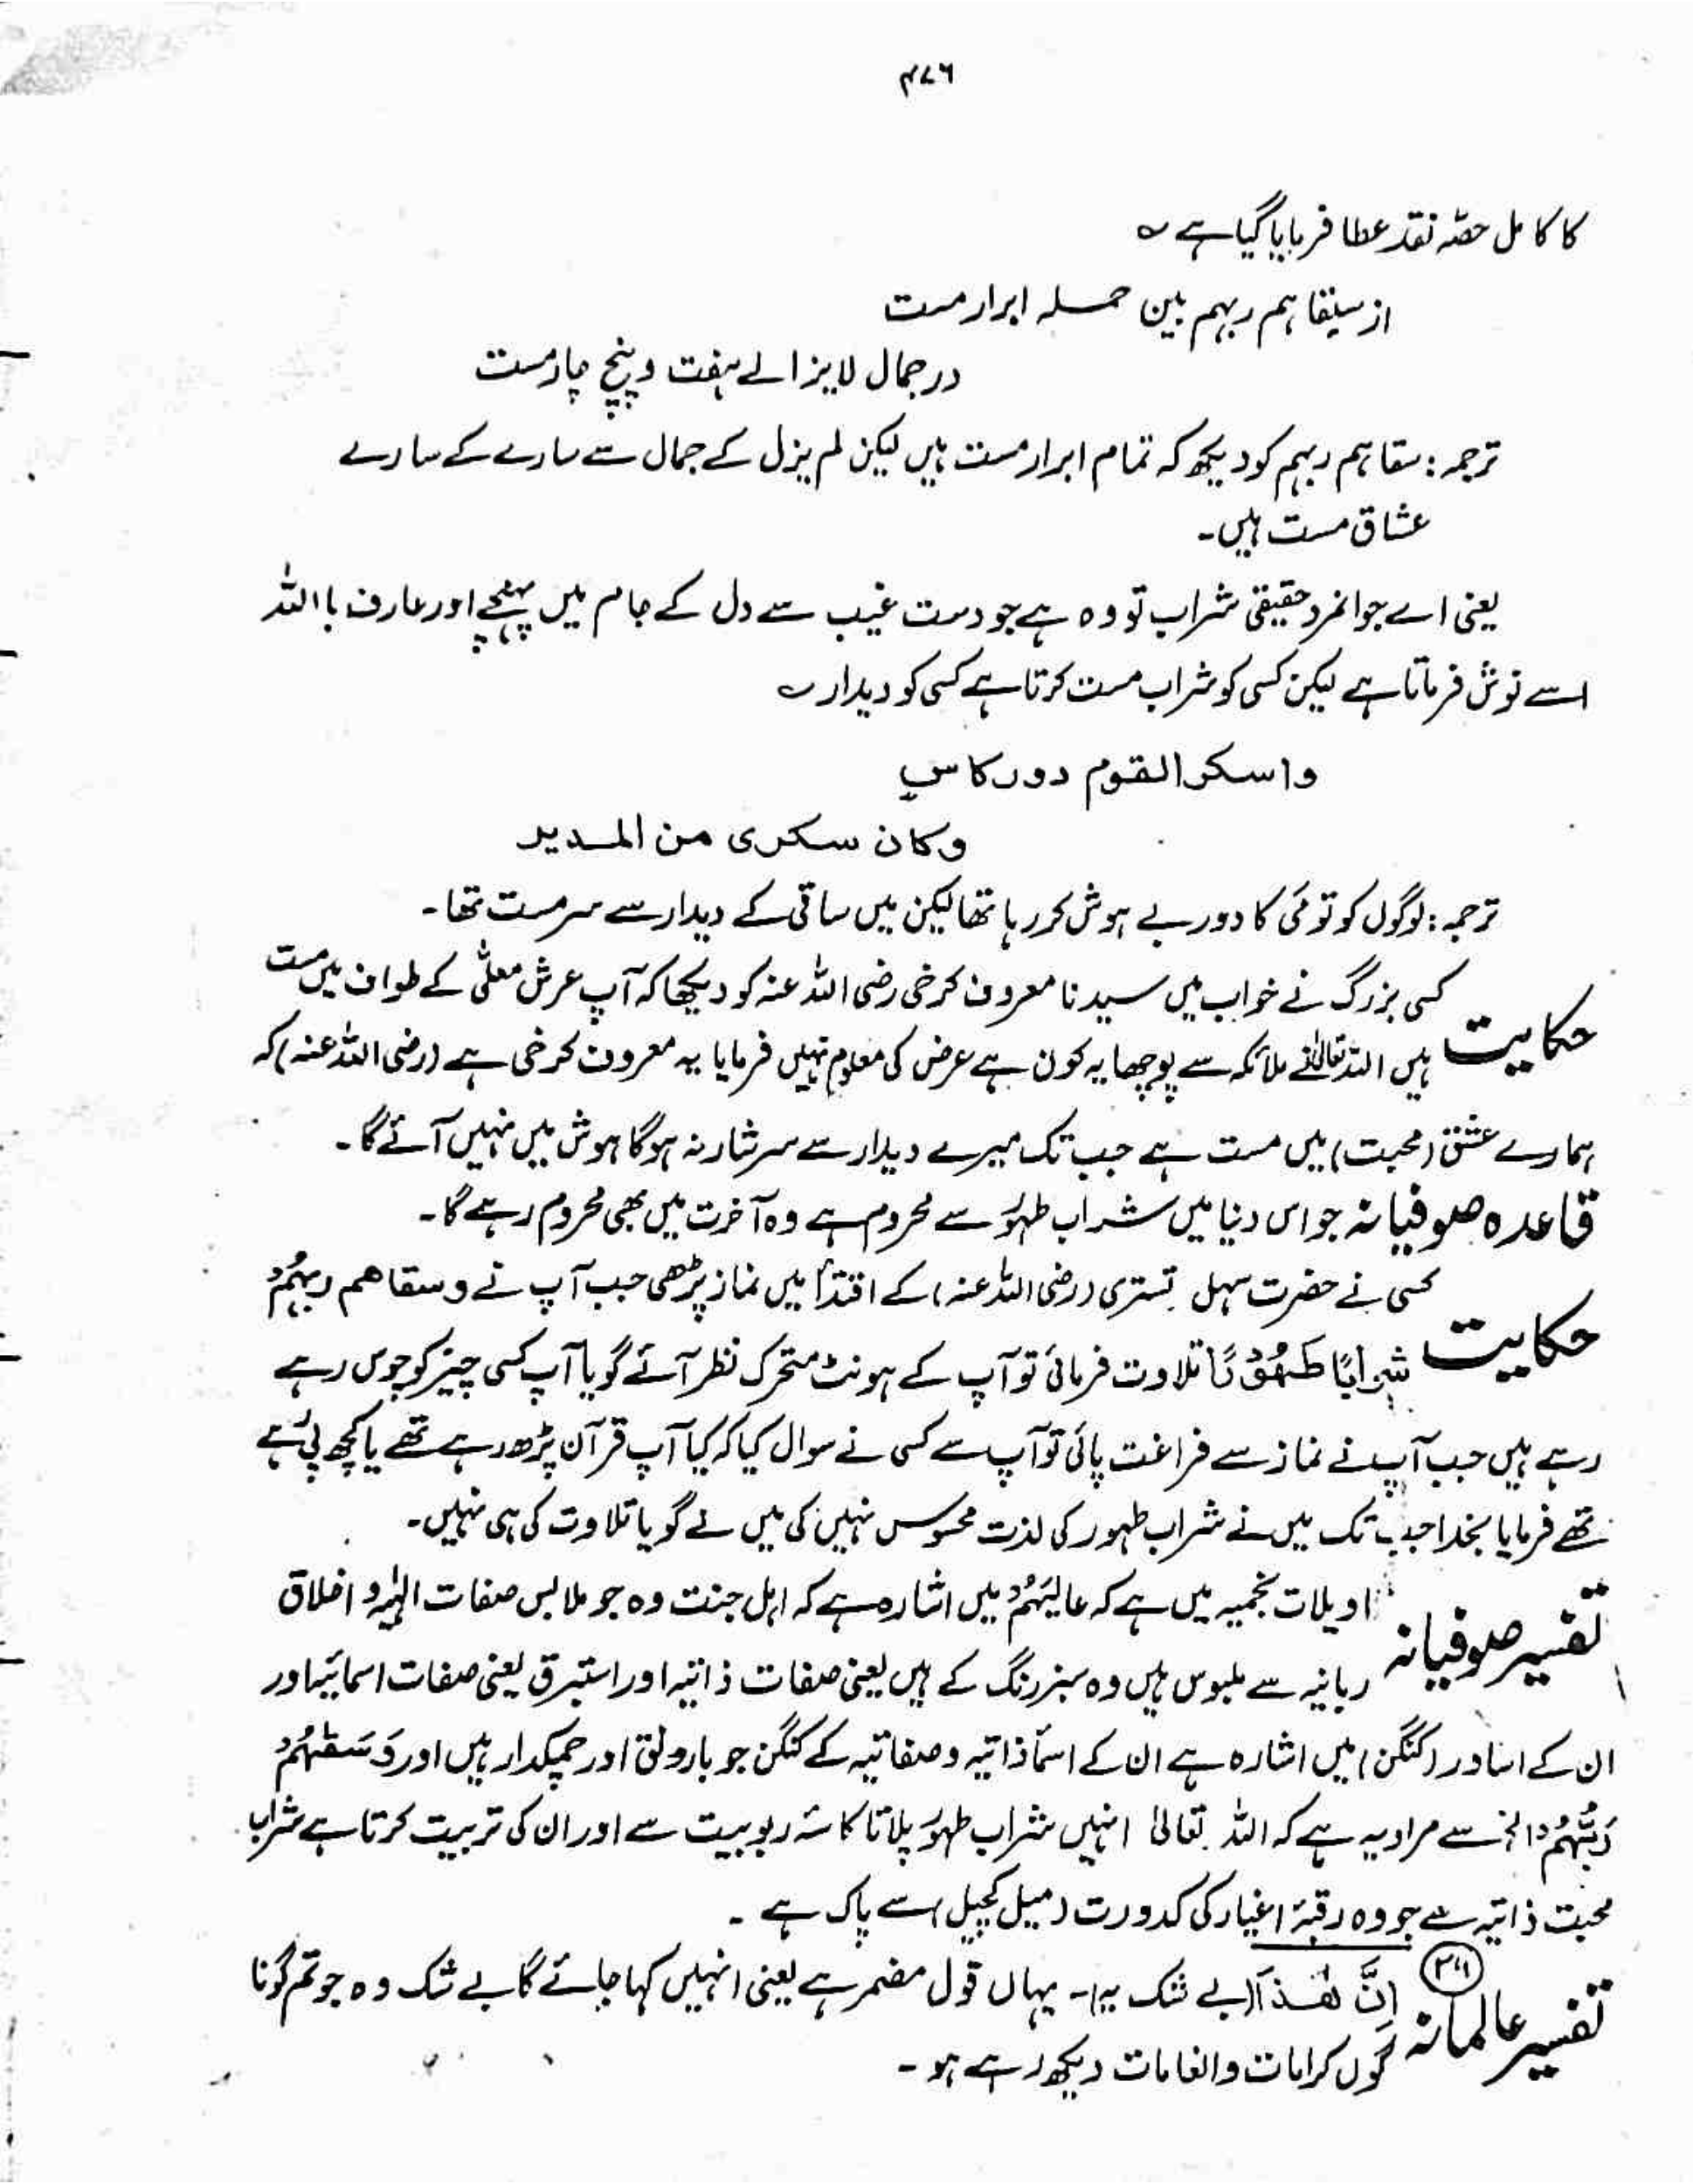 ۴۷۶
کا کامل حصّہ نقد عطا فرمایا گیا ہے ؎
از سقاہم ربہم بین جملہ ابرار مست
در جمال لایزالے ہفت و پنج و چار مست
ترجمہ : سقاہم ربہم کو دیکھ کہ تمام ابرار مست ہیں لیکن لم یزل کے جمال سے سارے کے سارے
عشاق مست ہیں۔
یعنی اے جوانمرد حقیقی شراب تو وہ ہے جو دست غیب سے دل کے جام میں پہنچے اور عارف باللہ
اسے نوش فرماتا ہے لیکن کسی کو شراب مست کرتا ہے کسی کو دیدار ؎
واسکر القوم دور کاس
وکان سکری من المدیر
ترجمہ : لوگوں کو تو مَی کا دور بے ہوش کر رہا تھا لیکن میں ساقی کے دیدار سے سرمست تھا۔
حکایت کسی بزرگ نے خواب میں سیدنا معروف کرخی رضی اللہ عنہ کو دیکھا کہ آپ عرش معلّٰی کے طواف میں مست
ہیں اللہ تعالیٰ نے ملائکہ سے پوچھا یہ کون ہے عرض کی معلوم نہیں فرمایا یہ معروف کرخی ہے (رضی اللہ عنہ) کہ
ہمارے عشق (محبت) میں مست ہے جب تک میرے دیدار سے سرشار نہ ہوگا ہوش میں نہیں آئے گا۔
قاعدہ صوفیانہ جو اس دنیا میں شراب طہور سے محروم ہے وہ آخرت میں بھی محروم رہے گا۔
حکایت کسی نے حضرت سہل تستری (رضی اللہ عنہ) کے اقتدأ میں نماز پڑھی جب آپ نے وسقاھم ربہُمْ
شرابًا طَہُوْرًا تلاوت فرمائی تو آپ کے ہونٹ متحرک نظر آئے گویا آپ کسی چیز کو چوس رہے
رہے ہیں جب آپ نے نماز سے فراغت پائی تو آپ سے کسی نے سوال کیا کہ کیا آپ قرآن پڑھ رہے تھے یا کچھ پی رہے
تھے فرمایا بخدا جب تک میں نے شراب طہور کی لذت محسوس نہیں کی میں نے گویا تلاوت کی ہی نہیں۔
تفسیر صوفیانہ اویلات نجمیہ میں ہے کہ عالیَہُمْ میں اشارہ ہے کہ اہل جنت وہ جو ملابس صفات الٰہیہ و اخلاق
ربانیہ سے ملبوس ہیں وہ سبز رنگ کے ہیں یعنی صفات ذاتیہ اور استبرق یعنی صفات اسمائیہ اور
ان کے اساور (کنگن) میں اشارہ ہے ان کے اسمأ ذاتیہ و صفاتیہ کے کنگن جو بارونق اور چمکدار ہیں اور وَسَقٰہُمْ
رَبُّہُمْ الخ سے مراد یہ ہے کہ اللہ تعالیٰ انہیں شراب طہور پلاتا کاسۂ ربوبیت سے اور ان کی تربیت کرتا ہے شراب
محبت ذاتیہ سے جو وہ رقبۂ اغیار کی کدورت (میل کچیل) سے پاک ہے ۔
تفسیر عالمانہ اِنَّ ھٰذَآ (بے شک یہ)۔ یہاں قول مضمر ہے یعنی انہیں کہا جائے گا بے شک وہ جو تم گونا
گوں کرامات و انعامات دیکھ رہے ہو ۔